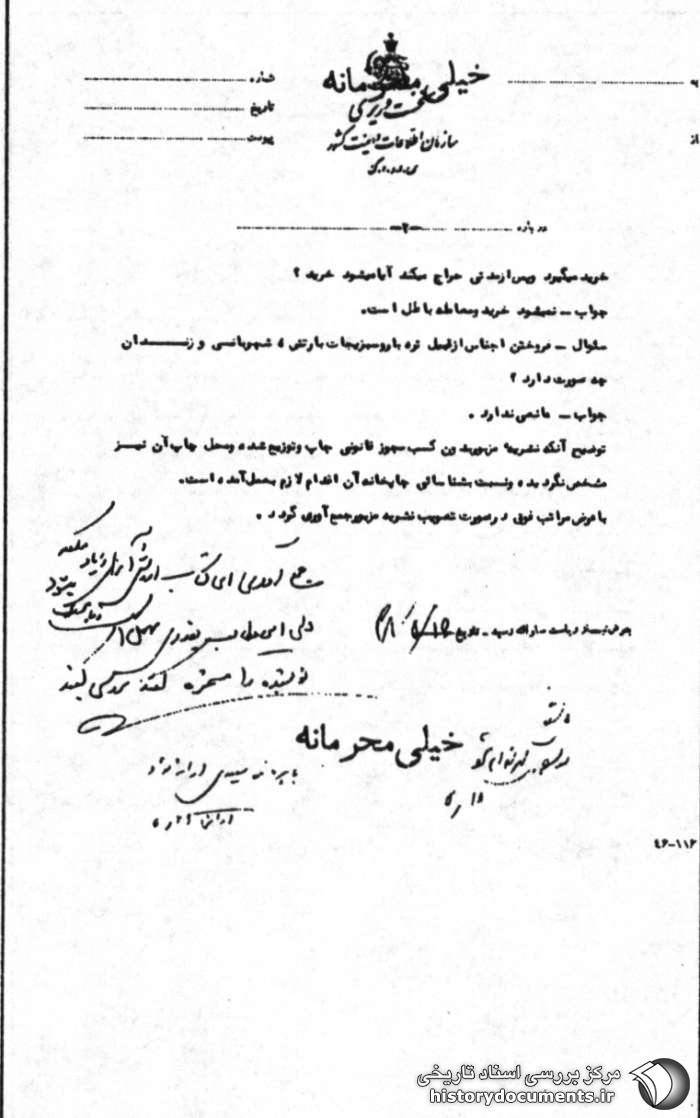 خیلی محرمانه
به
شماره
نخست وزیری
تاریخ
سازمان اطلاعات و امنیت کشور
از
پیوست
س.ا.و.ا.ک
در باره
-۲-
خرید میگیرد و پس از مدتی حراج میکند آیا میشود خرید ؟
جواب ـ نمیشود خرید و معامله باطل است.
سئوال ـ فروختن اجناس از قبیل تره بار و سبزیجات بارتش ، شهربانی و زندان
چه صورت دارد ؟
جواب ـ مانعی ندارد .
توضیح آنکه نشریه مزبور بدون کسب مجوز قانونی چاپ و توزیع شده و محل چاپ آن نیز
مشخص نگردیده و نسبت بشناسائی چاپخانه آن اقدام لازم بعمل آمده است.
با عرض مراتب فوق در صورت تصویب نشریه مزبور جمع آوری گردد .
جمع آوری این کتاب ارزش آنرا زیاد میکند
ولی این
نویسنده را مسخره کنند بررسی کنید
خیلی محرمانه
۴۶-۱۱۶
مرکز بررسی اسناد تاریخی
historydocuments.ir